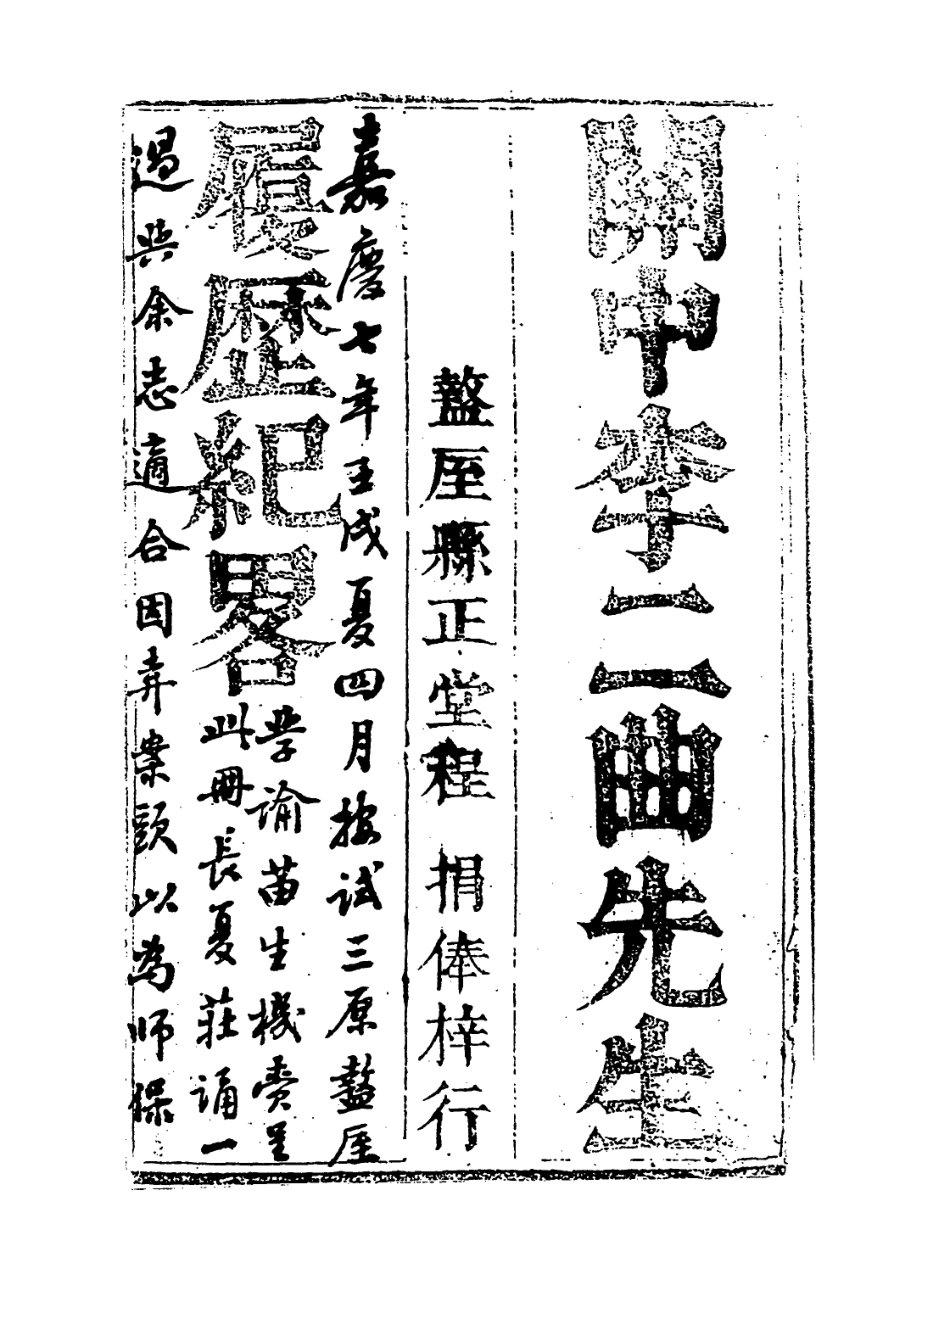 關中李二曲先生
盩厔縣正堂程　捐俸梓行
履歷紀畧
嘉慶七年壬戌夏四月按試三原盩厔
學諭苗生機賫呈
此冊長夏莊誦一
過與余志適合因弆案頭以為師保